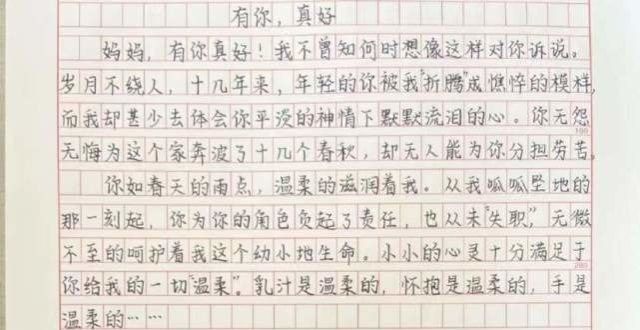 有你，真好
妈妈，有你真好！我不曾知何时想像这样对你诉说。
岁月不绕人，十几年来，年轻的你被我“折腾”成憔悴的模样，
而我却甚少去体会你平淡的神情下默默流泪的心。你无怨
100
无悔为这个家奔波了十几个春秋，却无人能为你分担劳苦。
你如春天的雨点，温柔的滋润着我。从我呱呱坠地的
那一刻起，你为你的角色负起了责任，也从未“失职”，无微
不至的呵护着我这个幼小地生命。小小的心灵十分满足于
200
你给我的一切“温柔”。乳汁是温柔的，怀抱是温柔的，手是
温柔的……